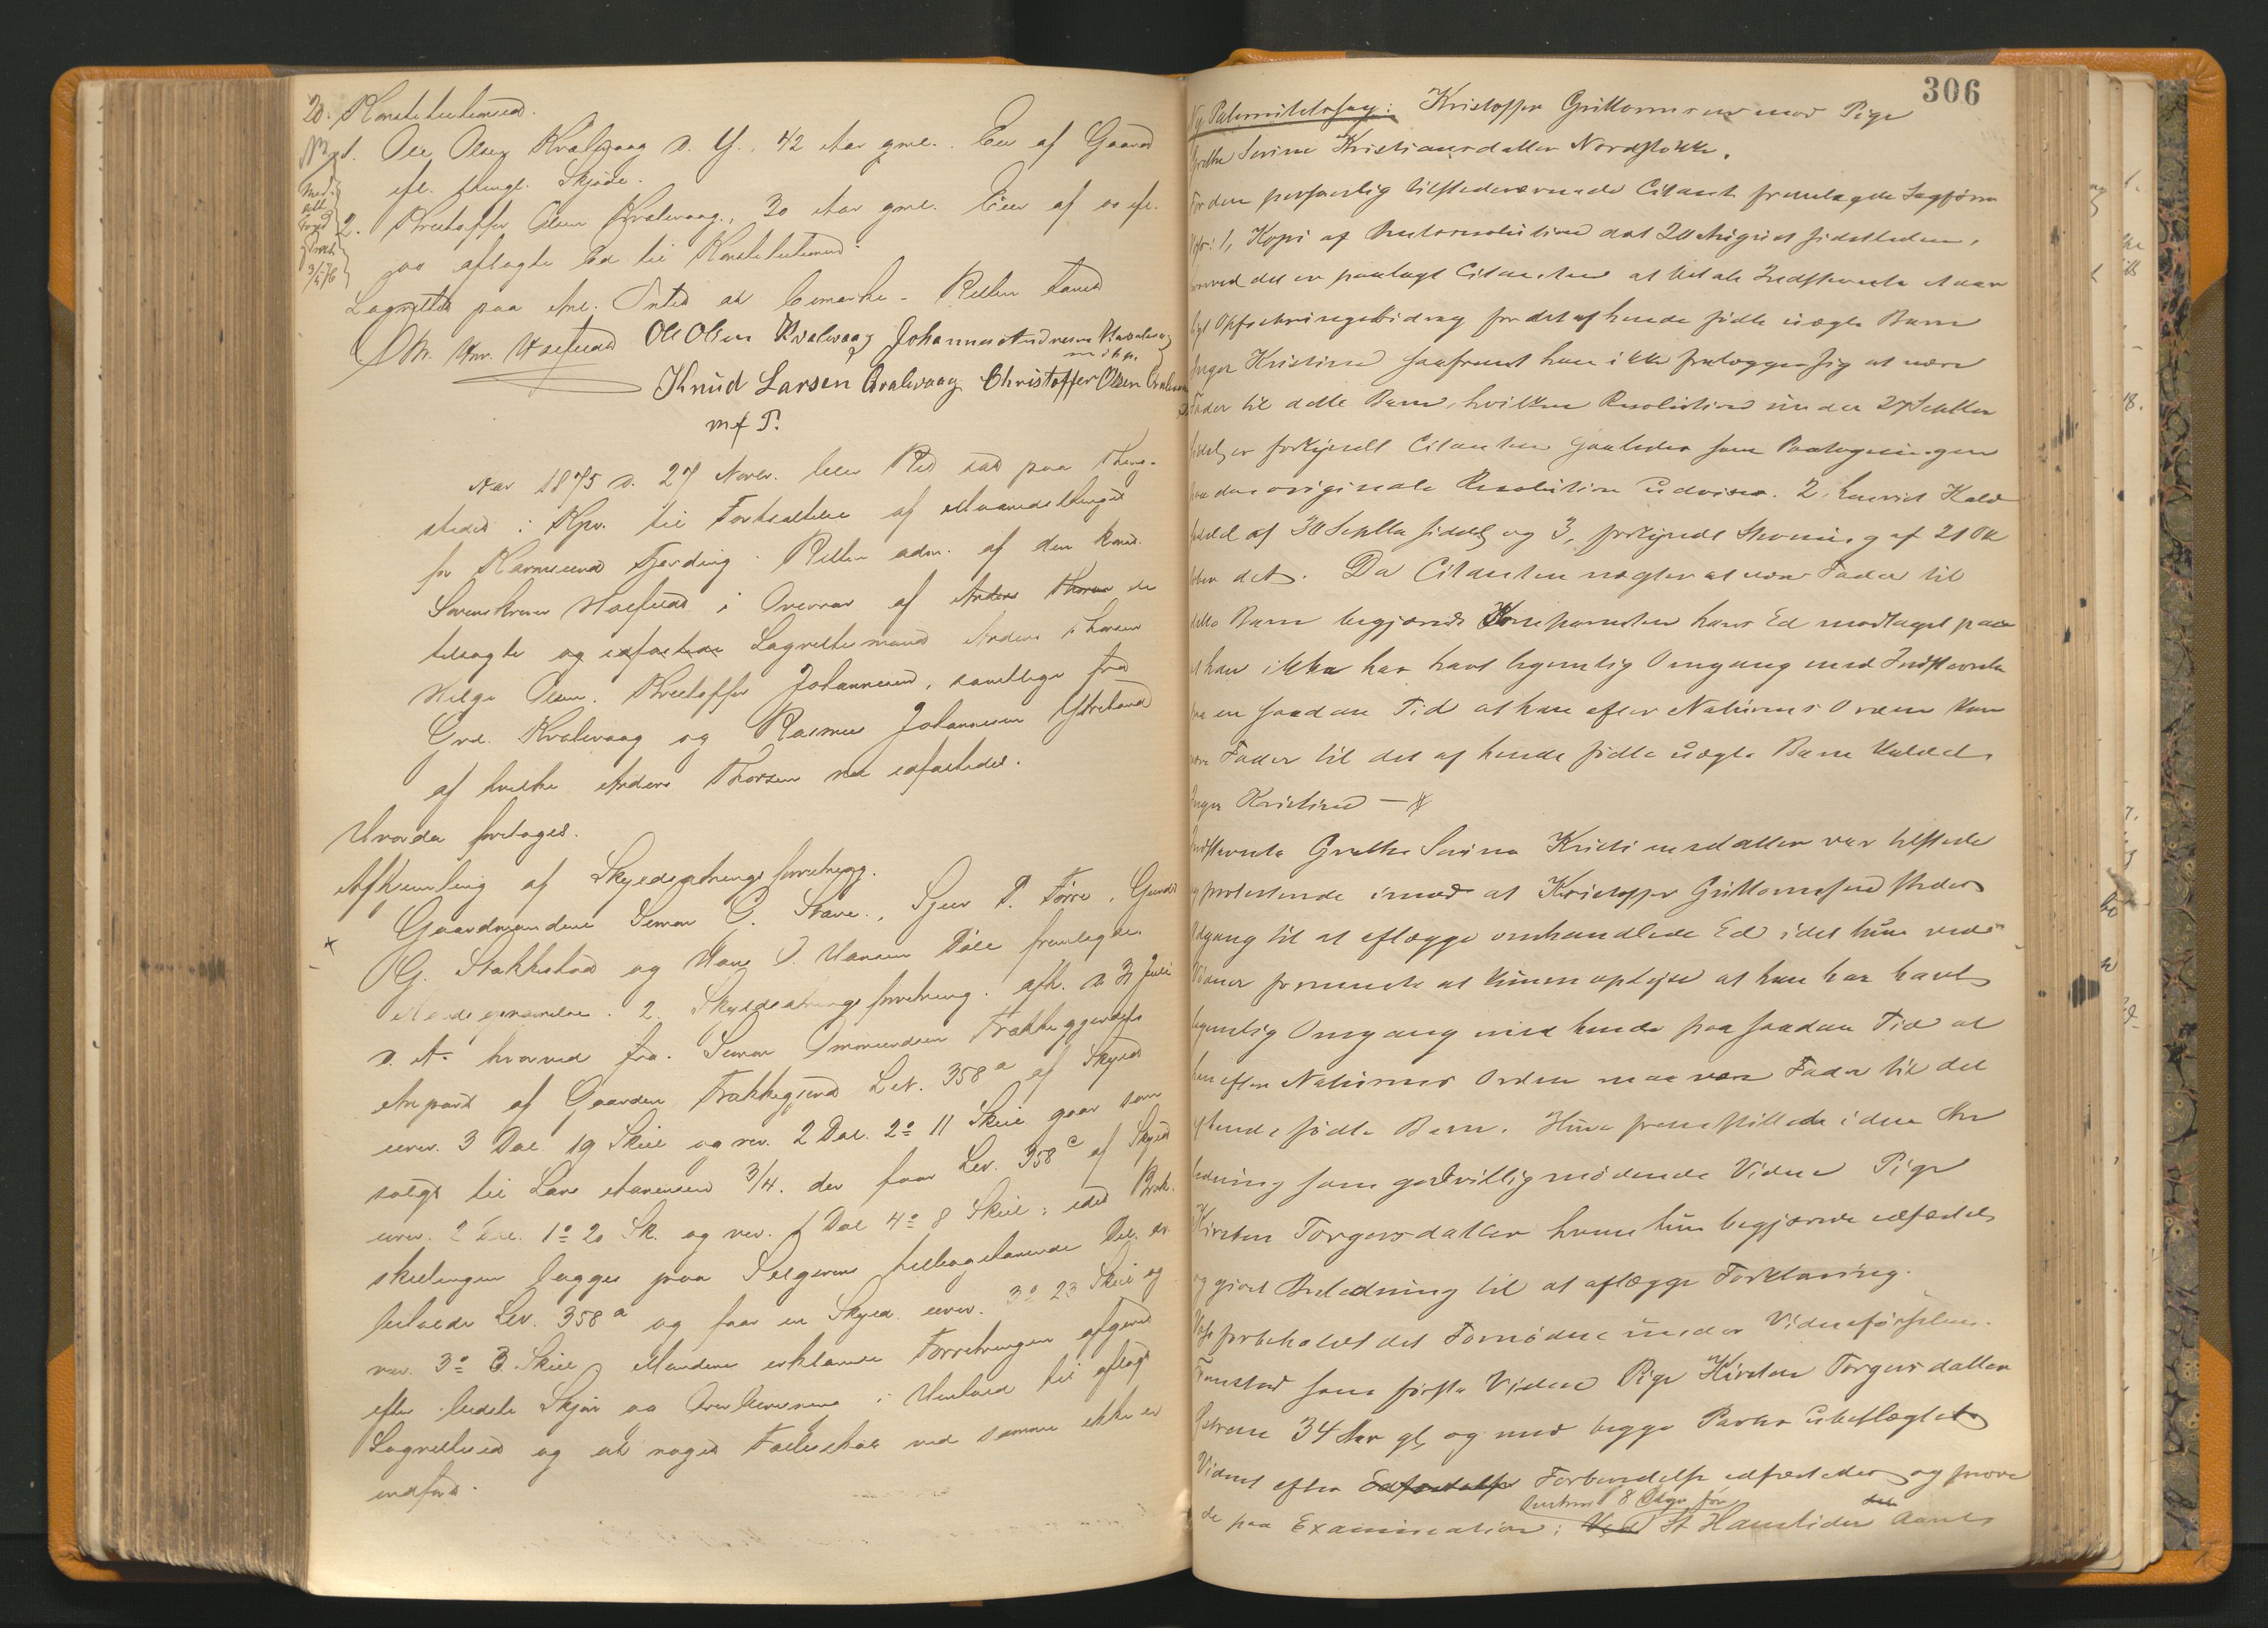 20. Konstitutionsed.
1. Ole Olsen Kvalevaag d. y., 42 Aar gml. Eier af Gaard
efl. thingl. Skjøde.
2. Kristoffer Olsen Kvalevaag, 30 Aar gml. Eier af do efl.
do aflagte Ed til Konstitutionen.
Lagrettet paa Anl. Intet at bemærke. Retten hævet
Ole Olsen Kvalevaag Johannes Andreasen Kvalevaag
m. i. p.
Knud Larsen Qvalevaag Christoffer Olsen Qvalevaag
m f P.
Aar 1875 d. 27 Novbr. blev Ret sat paa Thing-
stedet i Kpv. til Fortsættelse af Maanedsthinget
for Karmsund Fjerding. Retten adm. af den konst.
Sorenskriver i Overvær af Anders Thorsen de
tilsagte og edfæstede Lagrettesmænd Anders Thorsen
Helge Olsen, Kristoffer Johannesen, samtlige fra
Grd. Kvalevaag og Rasmus Johannesen Ytreland
af hvilke Anders Thorsen nu edfæstedes.
Hvorda foretoges.
Afhjemling af Skyldsætningsforretngg.
Gaardmændene Simon C. Stave, Sjur P. Førre, Gunder
G. Stakkestad og Hans O. Hansen Døle fremlagde
2. Skyldsætningsforretning afh. d. 31 Juli
d. A. hvorved fra Simon Omundsen Frakkegjerdets
Anpart af Gaarden Frakkegjerd Lnr. 358 a af Skyld
urev. 3 Dal. 19 Skill og rev. 2 Dal. 2 o 11 Skill gaar som
solgt til Lars Aanensen 3/4. der faar Lnr. 358 c af Skyld
urev. 2 Dal. 1 o 20 Sk. og rev. 1 Dal 4 o 8 Skill; idet Brøk-
skillingen lægges paa Sælgerens tilbagehavende Del. der
beholder Lnr. 358 a og faar en Skyld urev. 3 o 23 Skill og
rev. 3 o 3 Skill. Mændene erklærede Forretningen afgjort
efter bedste Skjøn og Overbevisning i Henhold til aflagt
Lagrettesed og at noget Fællesskab ved samme ikke er
indført.
306
Ny Paternitetssag: Kristoffer Guttormsen mod Pige
Grethe Serine Kristiansdatter Nordstokke.
For den personlig tilstedeværende Citant fremlagde Sagfører
1, Kopi af Amtsresolution dat 20 August sidstleden,
hvorved det er paalagt Citanten at betale Indstevnte et aar
ligt Opfostringsbidrag for det af hende fødte uægte Barn
Inger Kristine saafremt han ikke fralægger sig at være
Fader til dette Barn, hvilken Resolution under 27 Septbr
sidstl. er forkyndt Citanten saaledes som Paategningen
paa den originale Resolution udviser. 2, Kald
seddel af 30 Septbr sidstl og 3, forkyndt Stevning af 21 Ok
tober ds. Da Citanten nægter at være Fader til
dette Barn begjærede Komparenten hans Ed modtaget paa
at han ikke har havt legemlig Omgang med Indstevnte
paa en saadan Tid at han efter Naturens Orden kan
være Fader til det af hende fødte uægte Barn kaldet
Inger Kristine —
Indstevnte Grethe Serine Kristiansdatter var tilstede
og protesterede imod at Kristoffer Guttormsen stedes
Adgang til at aflægge omhandlede Ed idet hun ved
Vidner formente at kunne oplyse at han har havt
legemlig Omgang med hende paa saadan Tid at
han efter Naturens Orden maa være Fader til det
af hende fødte Barn. Hun fremstillede i den An
ledning som godvillig mødende Vidne Pige
Kirsten Torgersdatter hvem hun begjærede edfæstet
og givet Anledning til at aflægge Forklaring.
forbeholdt det Fornødne under Vidneførslen.
Fremstod som første Vidne Pige Kirsten Torgersdatter
34 Aar gl, og med begge Parter ubeslægtet
Vidnet efter Edfæstelse Formaning edfæstedes og provede
de paa Examination: Ved 8 Dage før St Hanstider